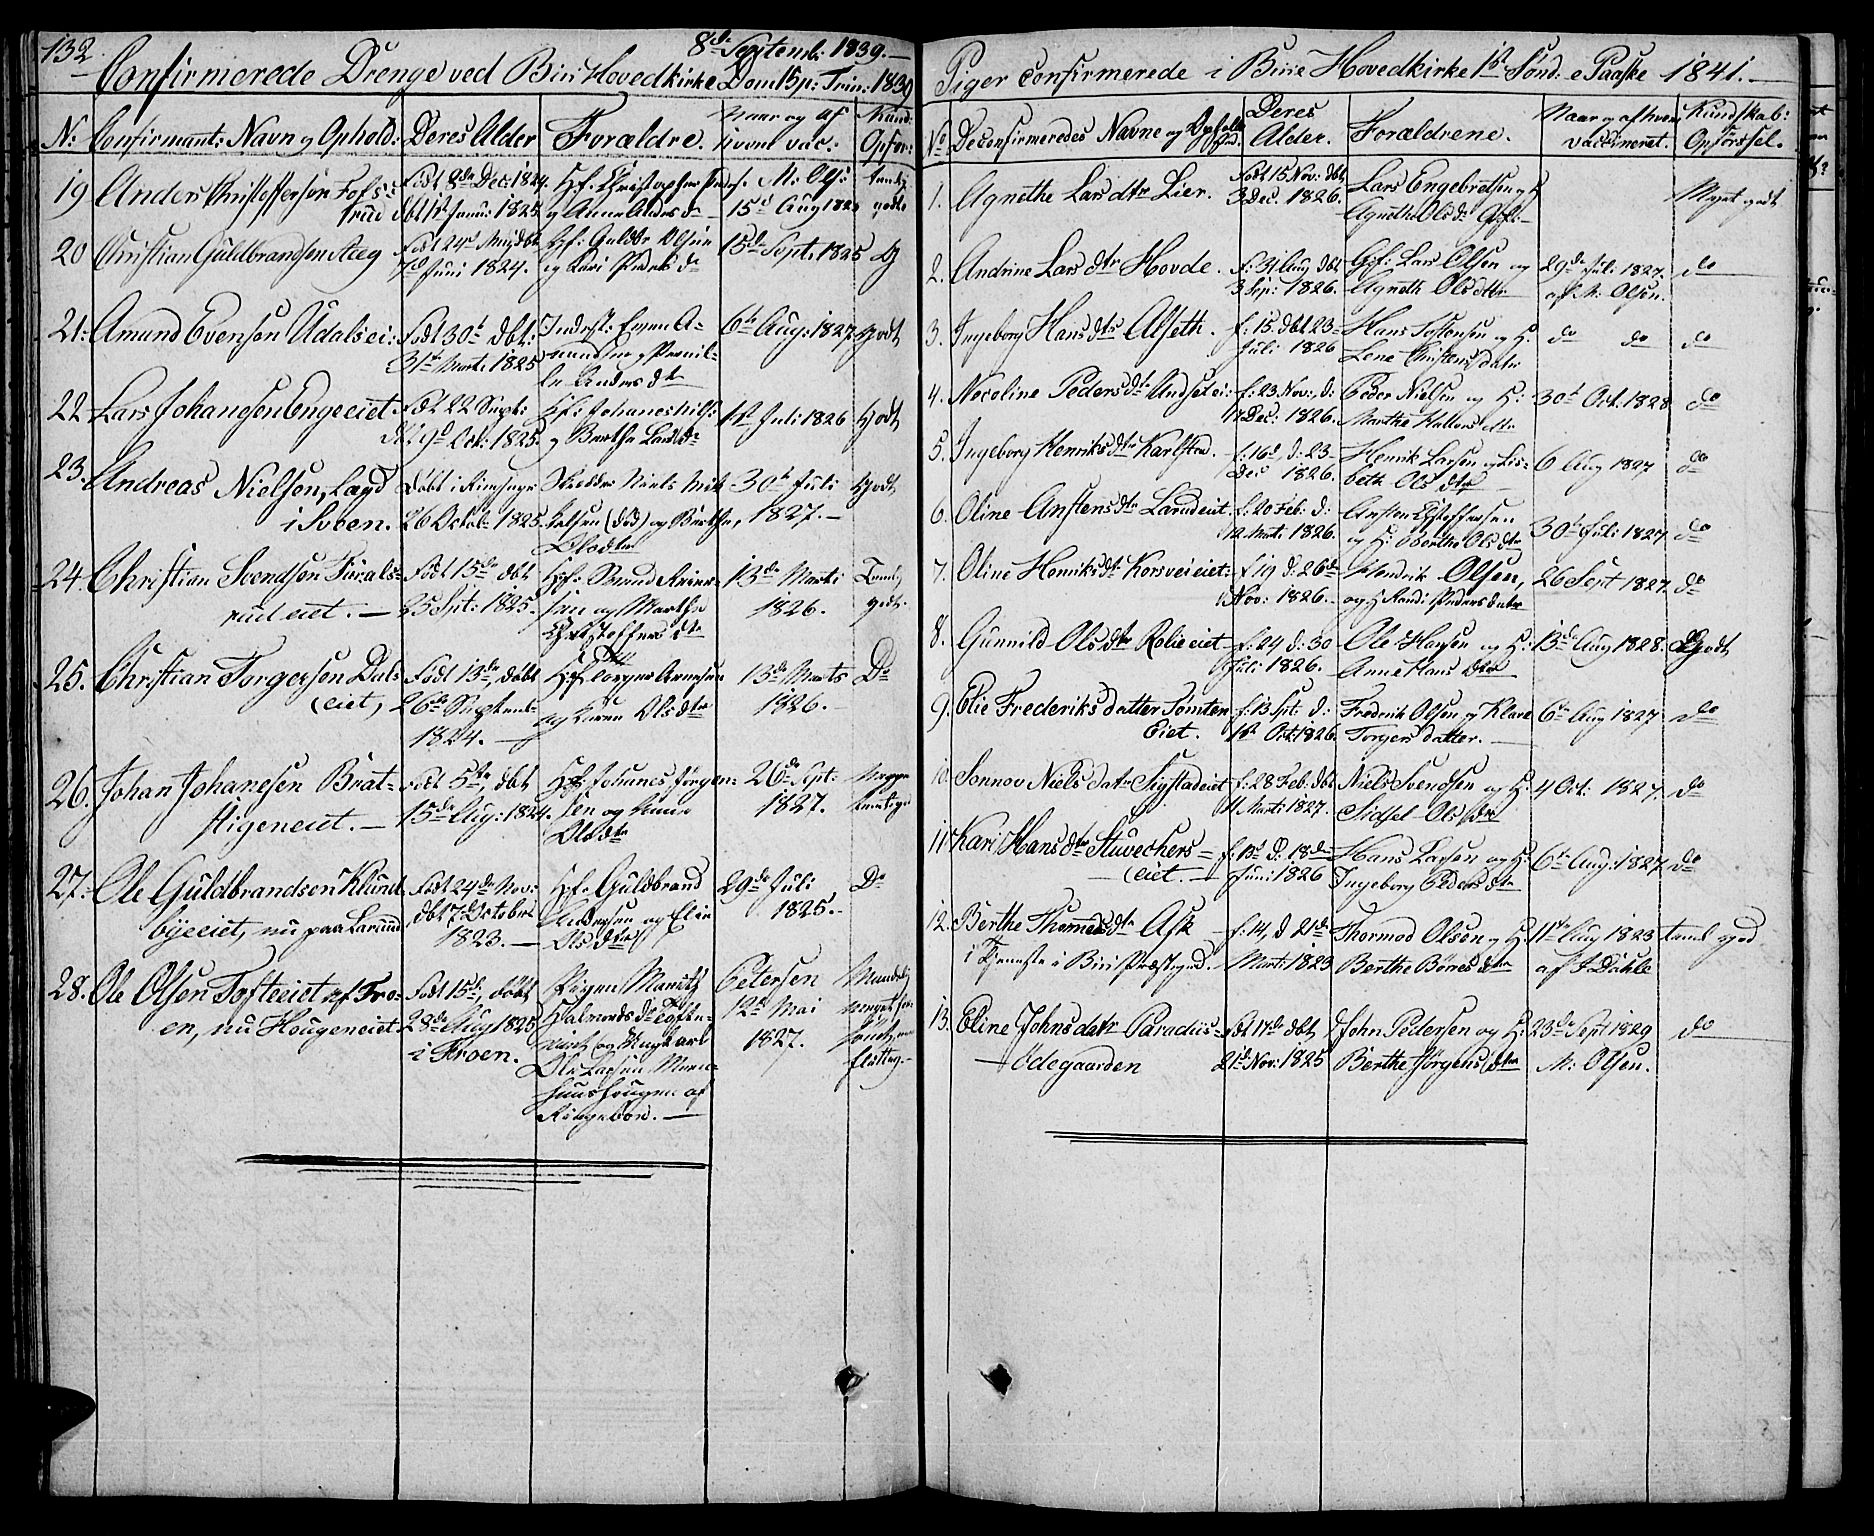 132
8de Septemb: 1839.—
Confirmerede Drenge ved Biri Hovedkirke Dom 15 p: Trin: 1839
N: Confirmant: Navn og Ophold: Deres Alder Forældre. Naar og af hvem vac: Kund: Opfør:
19 Anders Christoffersen Fos-
rud
Født 8de Dec: 1824
dbt 1ste Janu: 1825
og Anne Anders d
M: Ols:
15d Aug 182
temlig
godt
20 Christian Guldbrandsen Aaeg
Født 24d Mai, dbt
7d Juni 1824.
Hf: Guldbr Olsen
og Kari Peders d
15de Sept. 1825
21. Amund Evensen Udalsei:
Født 30te dbt:
31te Mart. 1825
Inderst: Even A-
mundsen og Pernil-
le Anders dtr
6te Aug: 1827
Godt
22 Lars Johanesen Engeeiet
Født 22 Sept:
dbt 9d Oct: 1825
Hf: Johanes Nils:
og Berthe Lars dr
1ste Juli 1826
Godt
23. Andreas Nielsen, Lægd
i Sveen.
Døbt i Ringsager
26 Octob: 1825.
Niels Mik
kelsen (død) og Berthe
Olsdtr
30te Juli
1827.—
Godt
24. Christian Svendsen Furals-
rud eiet.—
Født 15de dbt
25 Spt: 1825.
Hf: Svend Reier-
sen og Marthe
Christoffers dtr
13de Marti
1826.
Temlig
godt.
25. Christian Torgersen Dals
(eiet,
Født 13de, døbt
26de Septemb:
1824.—
Hf Torger Arnesen
og Karen Olsdtr
13de Marts
1826.—
Do
26. Johan Johanesen Brat-
stigeneiet.—
Født 5te, dbt
15de Aug: 1824.
Hf Johanes Jørgen-
sen og
Olsdtr
26de Spt:
1827.
Meget
temlige
27. Ole Guldbrandsen Klund
byeeiet, nu paa Larud
Født 24de Nov:
dbt 7 October
1823.—
Hf. Guldbrand
Andersen og Elie
Olsdtr
29de Juli
1825.—
Do
28. Ole Olsen Tofteeiet af Fro-
en, nu Hougeneiet
Født 15de, døbt
28de Aug 1825
i Froen.
Pigen Marith
Halvords dr Tofte-
eiet og Ungkarl
Ole Larsen
af
Ringeboe.—
Petersen
12te Mai
1827.
Maadelig
meget
flittig.-
Piger confirmerede i Birie Hovedkirke 1ste Sønd: e Paaske 1841.—
No De confirmeredes Navne og Opholdssted. Deres Alder. Forældrene. Naar og af hvem vaccineret. Kundskab: Opførsel.
1. Agnethe Lars dtr Lier.
Født 15 Nov: dbt
3 Dec. 1826.
Lars Engebretsen og H
Agnethe Ols dr Gf:
Meget godt
2. Andrine Lars dtr Hovde.
f: 31 Aug dbt
3 Sep: 1826.
Gf: Lars Olsen og
Agneth Ols dttr
29de Juli 1827.
af M: Olsen.
do
3. Ingeborg Hans dtr Alseth.
f: 15. dbt 23
Juli 1826
Hans Tostensen og H:
Lene Christens datr
do do do
4. Nocoline Peders dtr Undset ei:
f: 23 Nov: d:
17 Dec. 1826.
Peder Nielsen og H:
Marthe Halvors dtr
30te Oct. 1828
do
5. Ingeborg Henriks dtr Karlstad.
f. 16d d. 23
Dec 1826.
Henrik Larsen og Lis-
beth Ols dtr
6 Aug 1827
do
6. Oline Anstens dtr Larudeiet
f. 20 Feb. d:
12 Mart. 1826.
Ansten Christoffersen
og H: Berthe Ols dtr
30te Juli 1827
do
7. Oline Henriks dtr Korsveieiet
f 19 d: 26de
Nov: 1826.
Hendrik Olsen,
og H Randi Pedersdatr
26 Sept 1827.
do
8. Gunnild Ols dtr Rolieeiet
f. 24 d: 30
Juli 1826.
Ole Hansen og H:
Anne Hans dtr
13de Aug 1828.
Godt
9. Elie Frederiks datter Tomten
Eiet.
f. 13 Spt: d:
1ste Oct: 1826.
Frederik Olsen og Klare
Torgers datter.—
6te Aug 1827
do
10. Sønnov Niels datr Sigstadeiet
f: 28 Feb. dbt
11 Mart: 1827.
Niels Svendsen og H:
Sidsel Ols dtr
4 Oct: 1827.
do
11. Kari Hans dtr Stuveckers-
(eiet.—
f. 13d D. 18de
Juni 1826
Hans Larsen og H:
Ingeborg Peders dtr
6te Aug: 1827
do
12. Berthe Thormods dtr Ask
i Tjeneste i Biri Præstegrd.
f. 14, d 21de
Marti 1823
Thormod Olsen og H:
Berthe Børres dtr
11te Aug 1823
af J Dahle
temel: god
13. Eline Johns datr Paradiis-
—Ødegaarden
Født 17de dbt
21d Nov: 1825
John Pedersen og H:
Berthe Jørgens dtr
23de Sept 1829
M: Olsen.
do